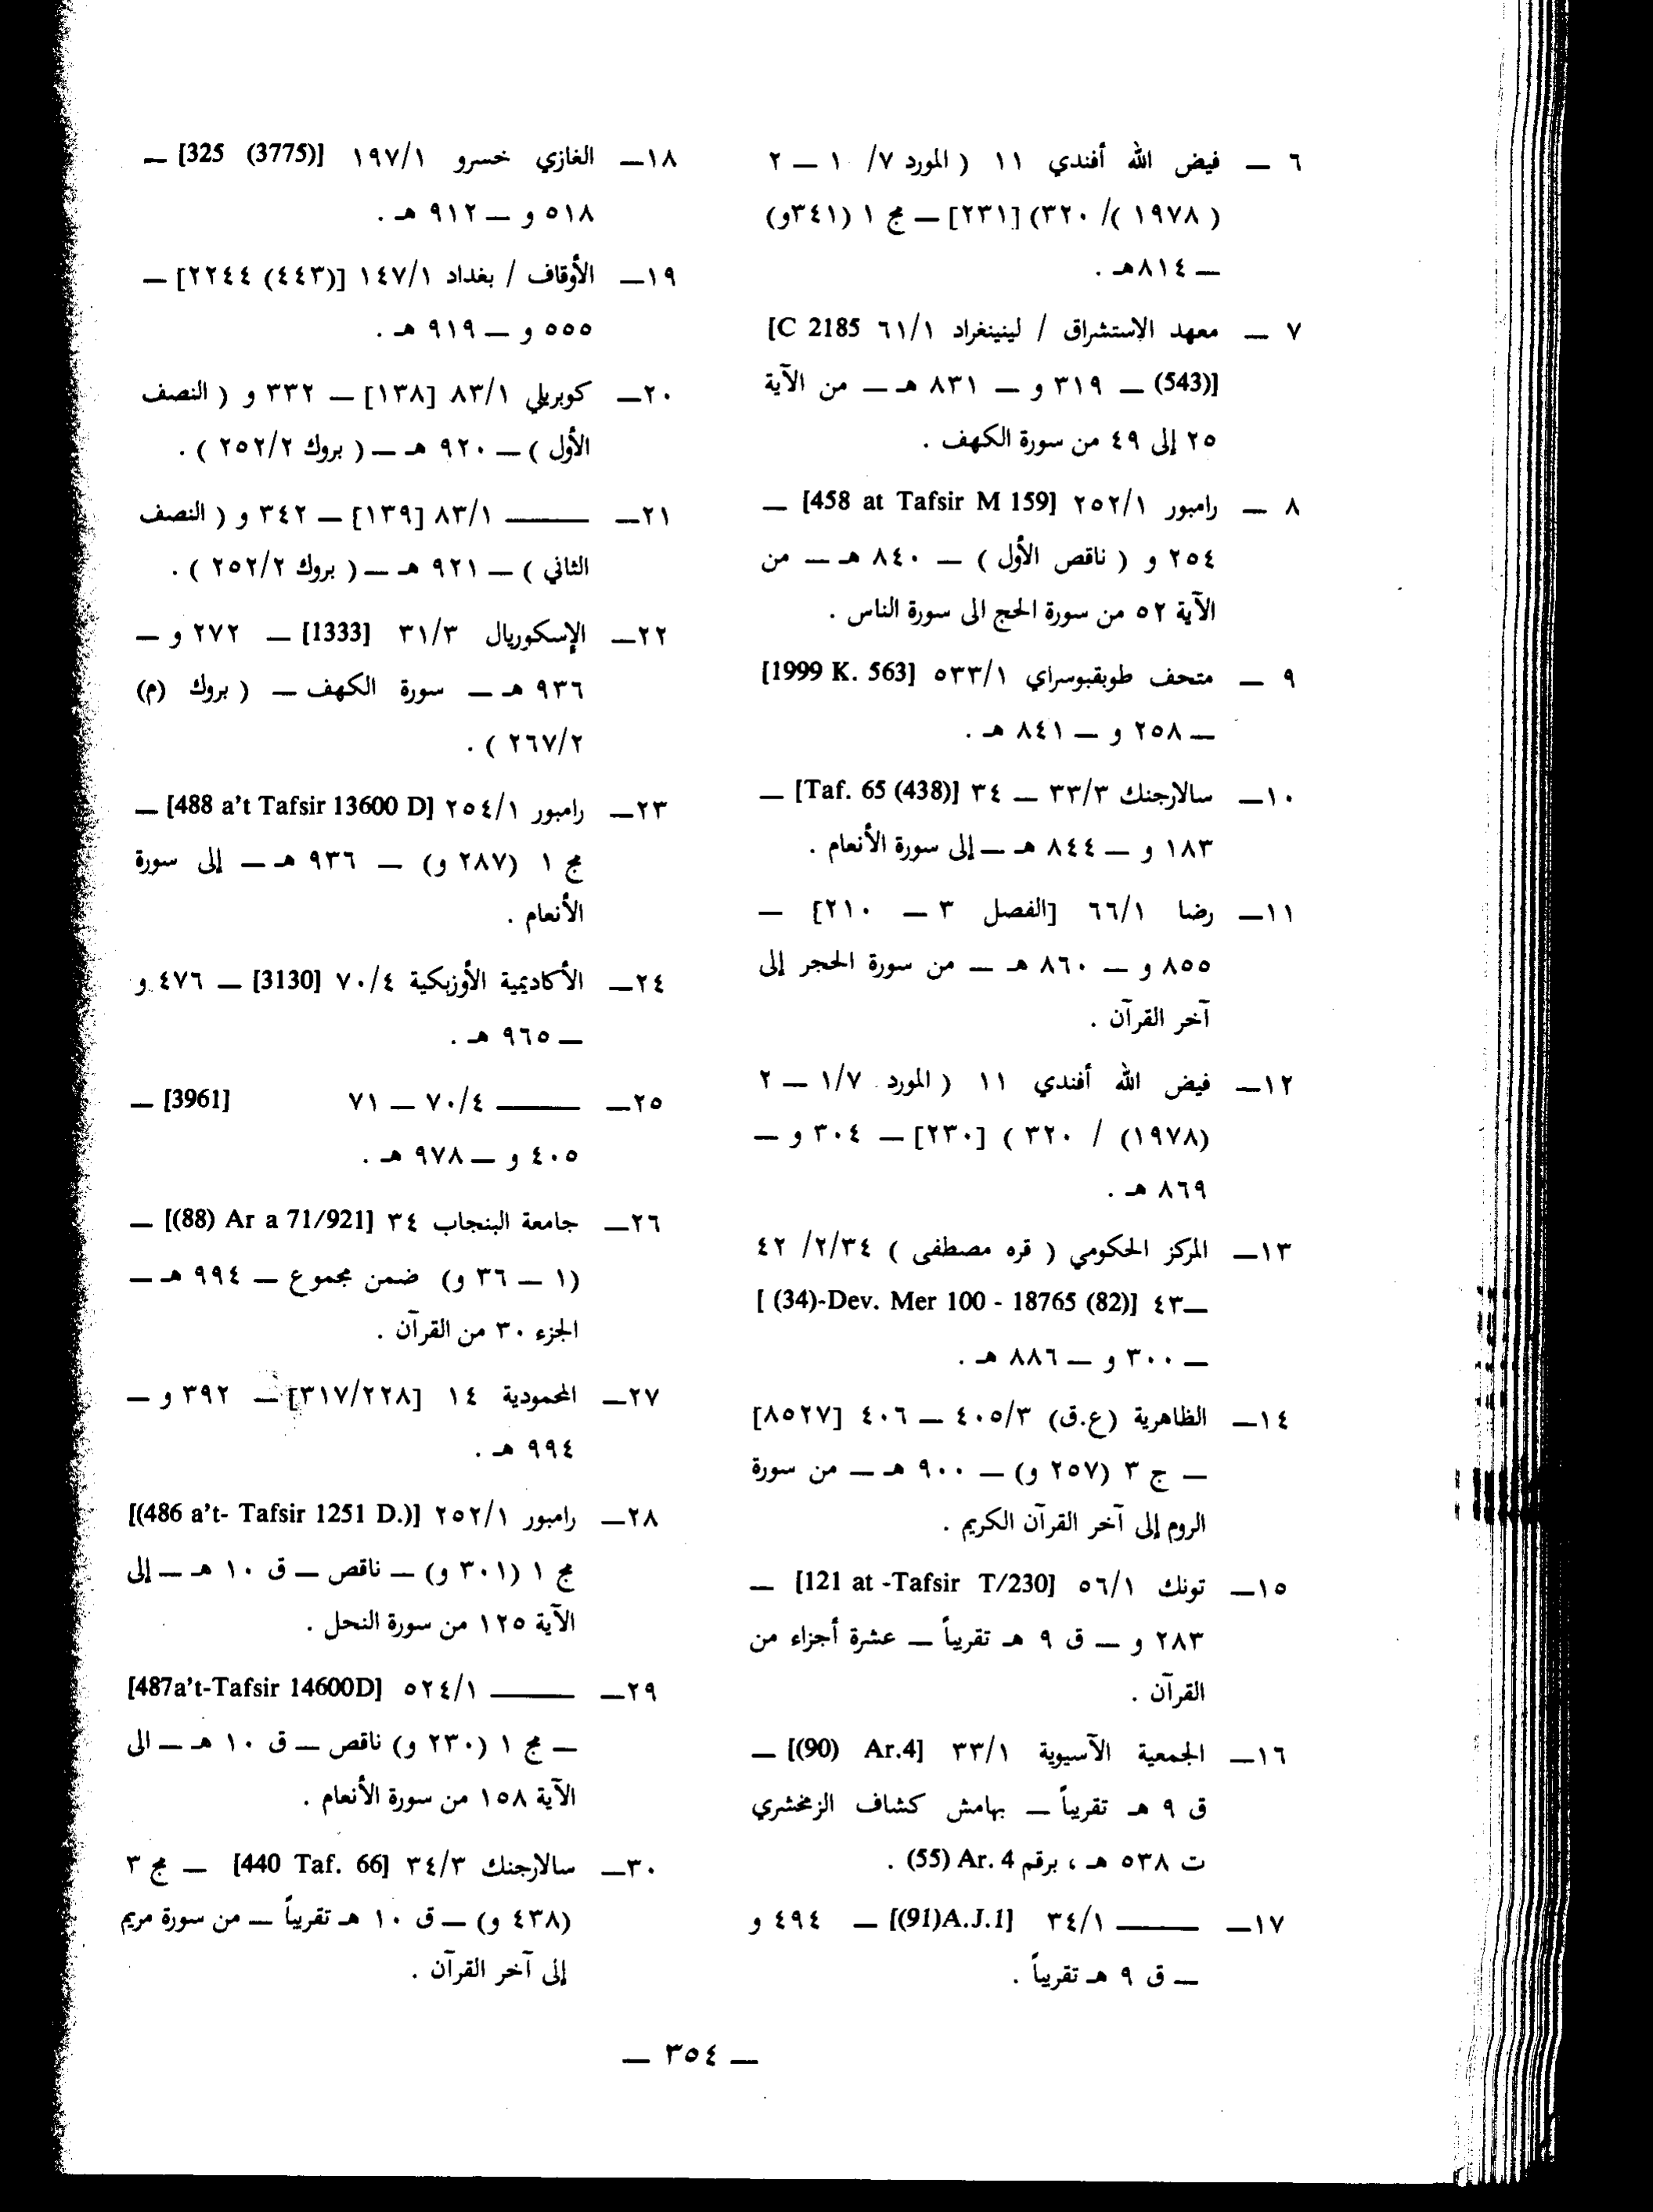 ٦ — فيض الله أفندي ١١ ( المورد ٧/ ١ — ٢
( ١٩٧٨ )/ ٣٢٠) [٢٣١] — مج ١ (٣٤١و)
— ٨١٤هـ .
٧ — معهد الاستشراق / لينينغراد ٦١/١ [C 2185
(543)] — ٣١٩ و — ٨٣١ هـ — من الآية
٢٥ إلى ٤٩ من سورة الكهف .
٨ — رامبور ٢٥٢/١ [458 at Tafsir M 159] —
٢٥٤ و ( ناقص الأول ) — ٨٤٠ هـ — من
الآية ٥٢ من سورة الحج الى سورة الناس .
٩ — متحف طوبقبوسراي ٥٣٣/١ [1999 K. 563]
— ٢٥٨ و — ٨٤١ هـ .
١٠— سالارجنك ٣٣/٣ — ٣٤ [Taf. 65 (438)] —
١٨٣ و — ٨٤٤ هـ — إلى سورة الأنعام .
١١— رضا ٦٦/١ [الفصل ٣ — ٢١٠] —
٨٥٥ و — ٨٦٠ هـ — من سورة الحجر إلى
آخر القرآن .
١٢— فيض الله أفندي ١١ ( المورد ١/٧ — ٢
(١٩٧٨) / ٣٢٠ ) [٢٣٠] — ٣٠٤ و —
٨٦٩ هـ .
١٣— المركز الحكومي ( قره مصطفى ) ٢/٣٤/ ٤٢
—٤٣ [ (34)-Dev. Mer 100 - 18765 (82)]
— ٣٠٠ و — ٨٨٦ هـ .
١٤— الظاهرية (ع.ق) ٤٠٥/٣ — ٤٠٦ [٨٥٢٧]
— ج ٣ (٢٥٧ و) — ٩٠٠ هـ — من سورة
الروم إلى آخر القرآن الكريم .
١٥— تونك ٥٦/١ [121 at -Tafsir T/230] —
٢٨٣ و — ق ٩ هـ تقريباً — عشرة أجزاء من
القرآن .
١٦— الجمعية الآسيوية ٣٣/١ [(90) Ar.4] —
ق ٩ هـ تقريباً — بهامش كشاف الزمخشري
ت ٥٣٨ هـ ، برقم Ar. 4 (55) .
١٧— ——— ٣٤/١ [(91)A.J.1] — ٤٩٤ و
— ق ٩ هـ تقريباً .
١٨— الغازي خسرو ١٩٧/١ [325 (3775)] —
٥١٨ و — ٩١٢ هـ .
١٩— الأوقاف / بغداد ١٤٧/١ [(٤٤٣) ٢٢٤٤] —
٥٥٥ و — ٩١٩ هـ .
٢٠— كوبريلي ٨٣/١ [١٣٨] — ٣٣٢ و ( النصف
الأول ) — ٩٢٠ هـ — ( بروك ٢٥٢/٢ ) .
٢١— ——— ٨٣/١ [١٣٩] — ٣٤٢ و ( النصف
الثاني ) — ٩٢١ هـ — ( بروك ٢٥٢/٢ ) .
٢٢— الإسكوريال ٣١/٣ [1333] — ٢٧٢ و —
٩٣٦ هـ — سورة الكهف — ( بروك (م)
٢٦٧/٢ ) .
٢٣— رامبور ٢٥٤/١ [488 a't Tafsir 13600 D] —
مج ١ (٢٨٧ و) — ٩٣٦ هـ — إلى سورة
الأنعام .
٢٤— الأكاديمية الأوزبكية ٧٠/٤ [3130] — ٤٧٦ و
— ٩٦٥ هـ .
٢٥— ——— ٧٠/٤ — ٧١ [3961] —
٤٠٥ و — ٩٧٨ هـ .
٢٦— جامعة البنجاب ٣٤ [(88) Ar a 71/921] —
(١ — ٣٦ و) ضمن مجموع — ٩٩٤ هـ —
الجزء ٣٠ من القرآن .
٢٧— المحمودية ١٤ [٣١٧/٢٢٨] — ٣٩٢ و —
٩٩٤ هـ .
٢٨— رامبور ٢٥٢/١ [(486 a't- Tafsir 1251 D.)]
مج ١ (٣٠١ و) — ناقص — ق ١٠ هـ — إلى
الآية ١٢٥ من سورة النحل .
٢٩— ——— ٥٢٤/١ [487a't-Tafsir 14600D]
— مج ١ (٢٣٠ و) ناقص — ق ١٠ هـ — الى
الآية ١٥٨ من سورة الأنعام .
٣٠— سالارجنك ٣٤/٣ [440 Taf. 66] — مج ٣
(٤٣٨ و) — ق ١٠ هـ تقريباً — من سورة مريم
إلى آخر القرآن .
— ٣٥٤ —